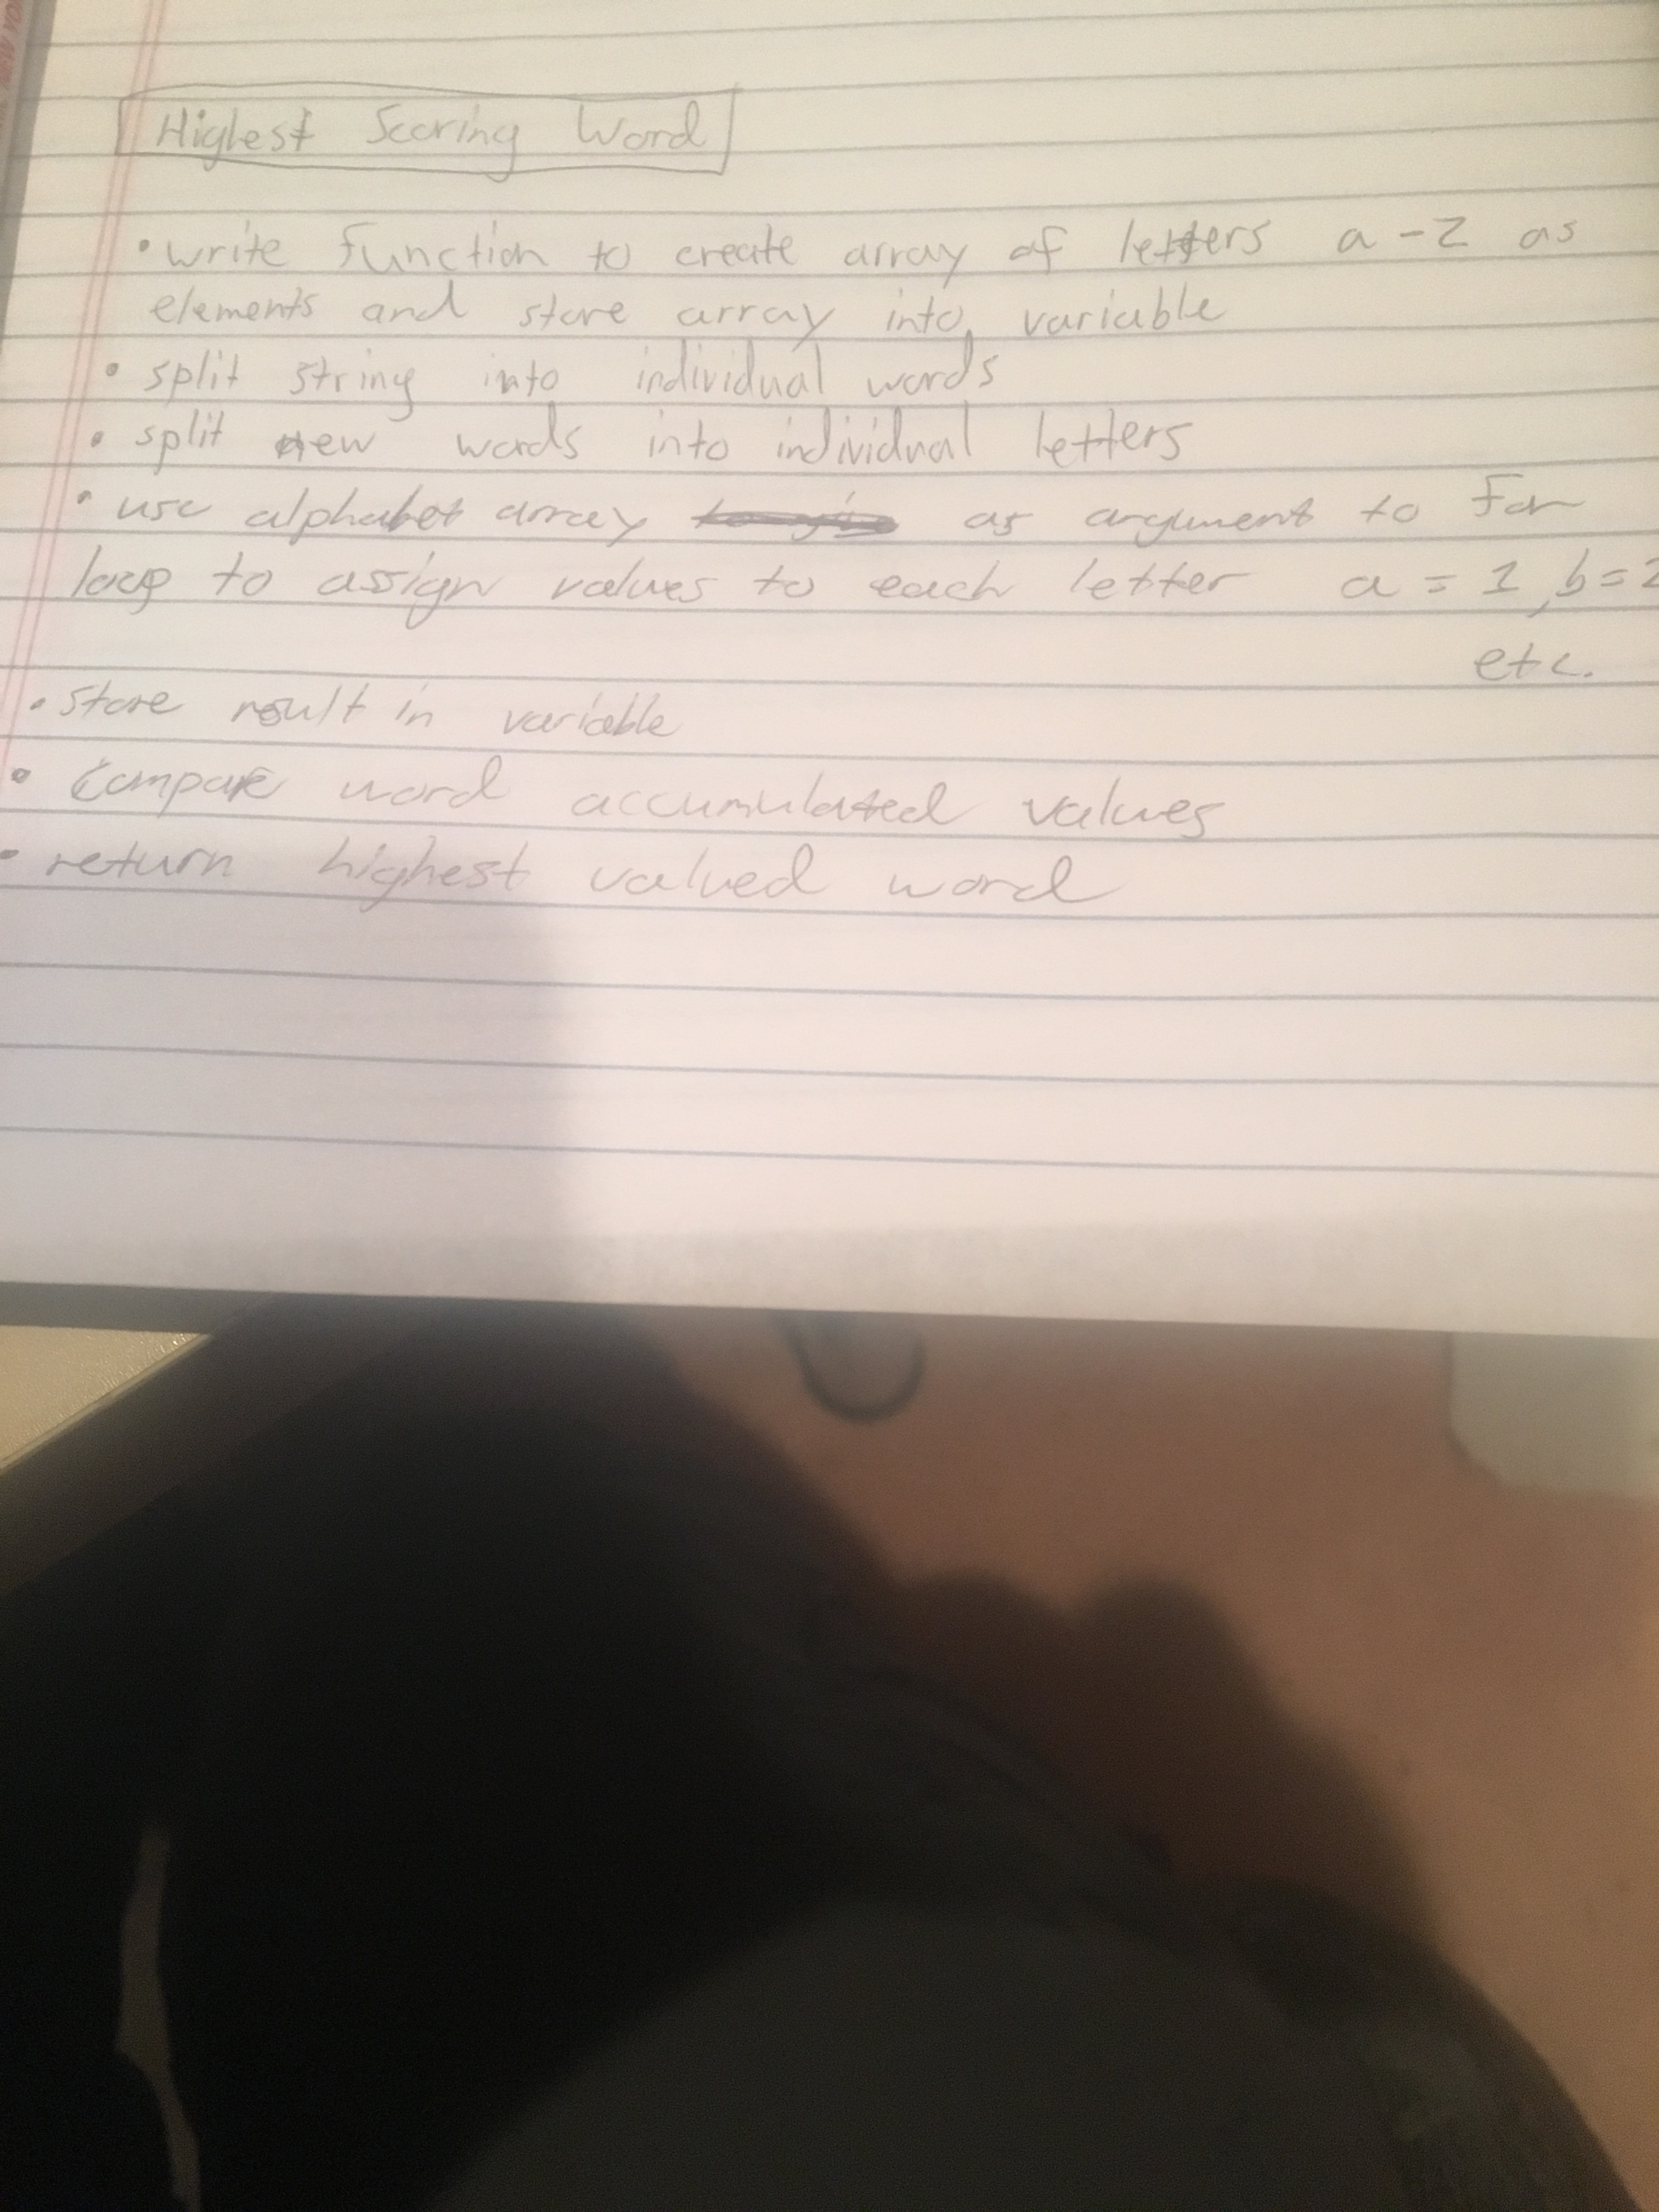 Highest Scoring Word
• write function to create array of letters a-z as
elements and store array into variable
• split string into individual words
• split new words into individual letters
• use alphabet array as argument to for
loop to assign values to each letter a = 1, b = 2
etc.
• store result in variable
• Compare word accumulated values
• return highest valued word